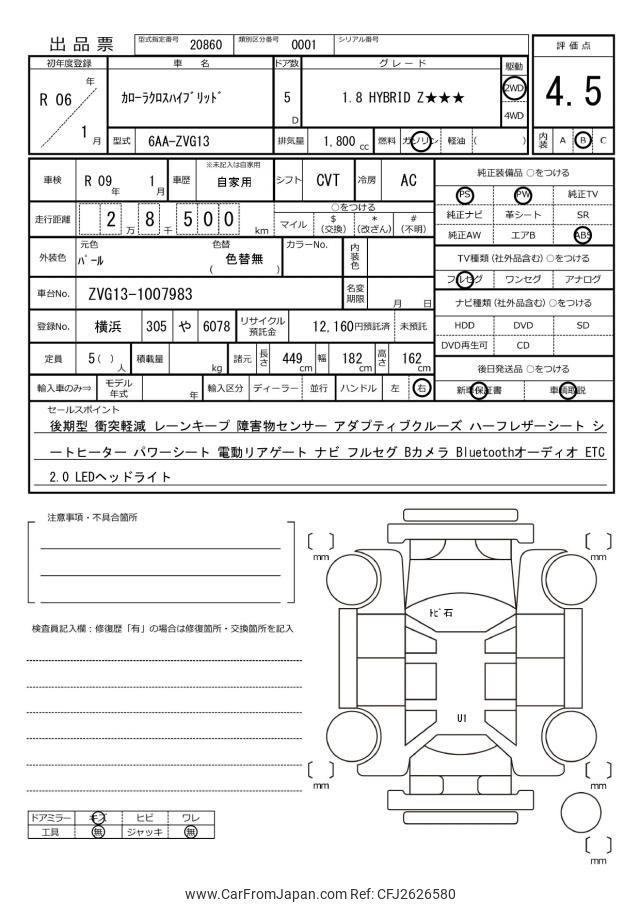 出品票 型式指定番号 20860 類別区分番号 0001 シリアル番号
評価点
初年度登録 車名 ドア数 グレード 駆動
R 06 年 1月
カローラクロスハイブリッド 5 D 1.8 HYBRID Z★★★ 2WD 4WD
4.5
型式 6AA-ZVG13 排気量 1,800 cc 燃料 ガソリン 軽油 ( )
内装 A B C
車検 R 09 年 1 月 車歴 ※未記入は自家用 自家用 シフト CVT 冷房 AC
純正装備品 ○をつける
PS PW 純正TV
走行距離 2 万 8 千 5 0 0 km
○をつける
マイル $ (交換) * (改ざん) # (不明)
純正ナビ 革シート SR
純正AW エアB ABS
外装色 元色 パール 色替 ( 色替無 ) カラーNo. 内装色
TV種類 (社外品含む) ○をつける
フルセグ ワンセグ アナログ
車台No. ZVG13-1007983 名変期限 月 日
ナビ種類 (社外品含む) ○をつける
登録No. 横浜 305 や 6078 リサイクル預託金 12,160円預託済 未預託
HDD DVD SD
DVD再生可 CD
定員 5( ) 人 積載量 kg 諸元 長さ 449 cm 幅 182 cm 高さ 162 cm
後日発送品 ○をつける
輸入車のみ⇒ モデル年式 年 輸入区分 ディーラー 並行 ハンドル 左 右
新車保証書 車輌取説
セールスポイント
後期型 衝突軽減 レーンキープ 障害物センサー アダプティブクルーズ ハーフレザーシート シ
ートヒーター パワーシート 電動リアゲート ナビ フルセグ Bカメラ Bluetoothオーディオ ETC
2.0 LEDヘッドライト
注意事項・不具合箇所
mm
mm
トビ石
検査員記入欄：修復歴「有」の場合は修復箇所・交換箇所を記入
U1
mm
mm
ドアミラー キズ ヒビ ワレ
工具 無 ジャッキ 無
mm
www.CarFromJapan.com Ref: CFJ2626580